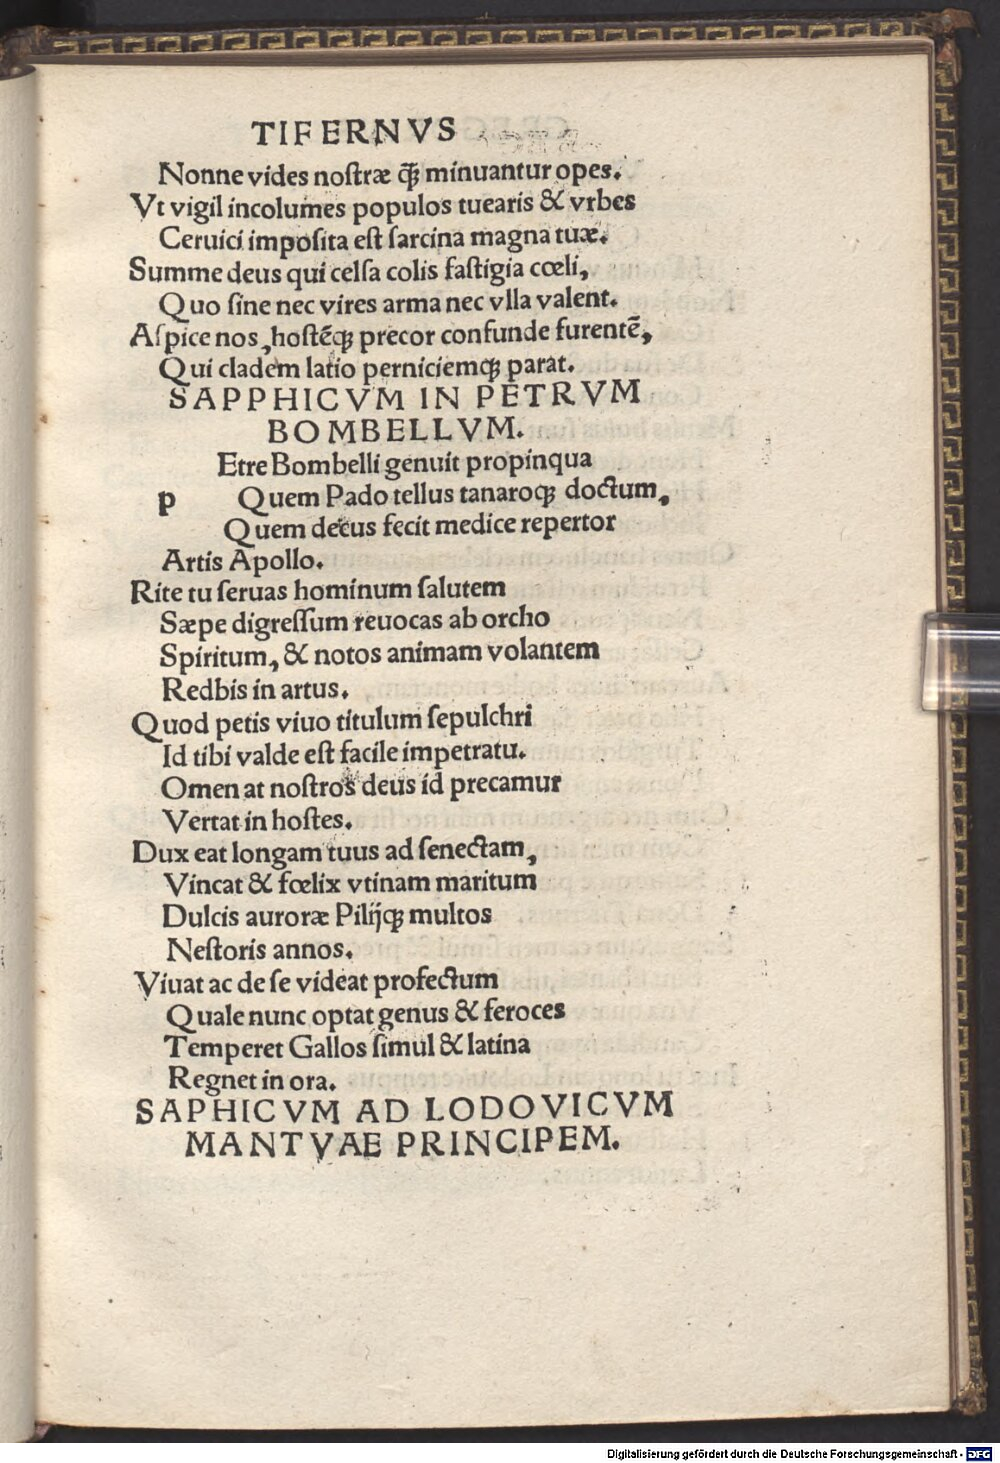 TIFERNVS
Nonne vides noſtræ ꝙ̃ minuantur opes.
Vt vigil incolumes populos tuearis & vrbes
Ceruici impoſita eſt ſarcina magna tuæ.
Summe deus qui celſa colis faſtigia cœli,
Quo ſine nec vires arma nec vlla valent.
Aſpice nos, hoſtēqꝫ precor confunde furentē,
Qui cladem latio perniciemqꝫ parat.
SAPPHICVM IN PETRVM
BOMBELLVM.
Etre Bombelli genuit propinqua
p Quem Pado tellus tanaroqꝫ doctum,
Quem decus fecit medice repertor
Artis Apollo.
Rite tu ſeruas hominum ſalutem
Sæpe digreſſum reuocas ab orcho
Spiritum, & notos animam volantem
Redbis in artus.
Quod petis viuo titulum ſepulchri
Id tibi valde eſt facile impetratu.
Omen at noſtros deus id precamur
Vertat in hoſtes.
Dux eat longam tuus ad ſenectam,
Vincat & fœlix vtinam maritum
Dulcis auroræ Pilijqꝫ multos
Neſtoris annos.
Viuat ac de ſe videat profectum
Quale nunc optat genus & feroces
Temperet Gallos ſimul & latina
Regnet in ora.
SAPHICVM AD LODOVICVM
MANTVAE PRINCIPEM.
Digitalisierung gefördert durch die Deutsche Forschungsgemeinschaft - DFG